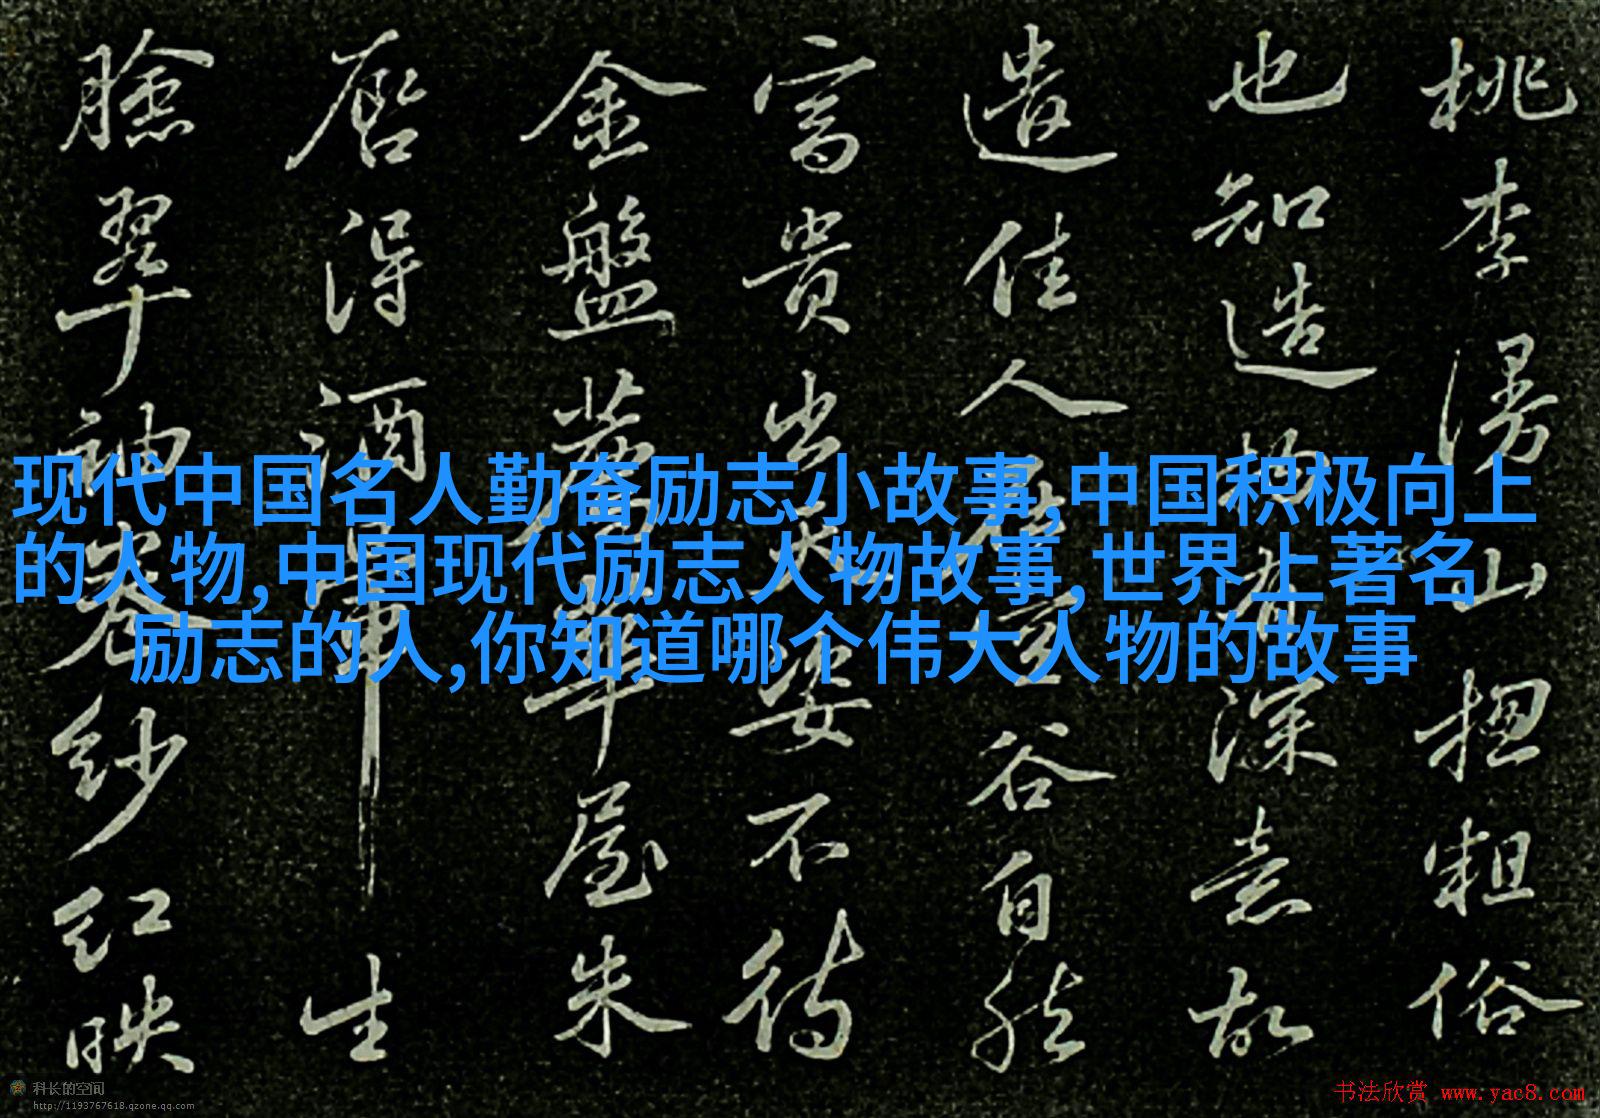 桃李漫山揔粗俗
也知造物有深意故
遣佳人在空谷自然
富貴出天姿不待
金盤薦華屋朱
唇得酒暈生
臉翠袖卷紗紅映
现代中国名人勤奋励志小故事,中国积极向上
的人物,中国现代励志人物故事,世界上著名
励志的人,你知道哪个伟大人物的故事
科长的空间
http://1193767618.qzone.qq.com
书法欣赏 www.yac8.com